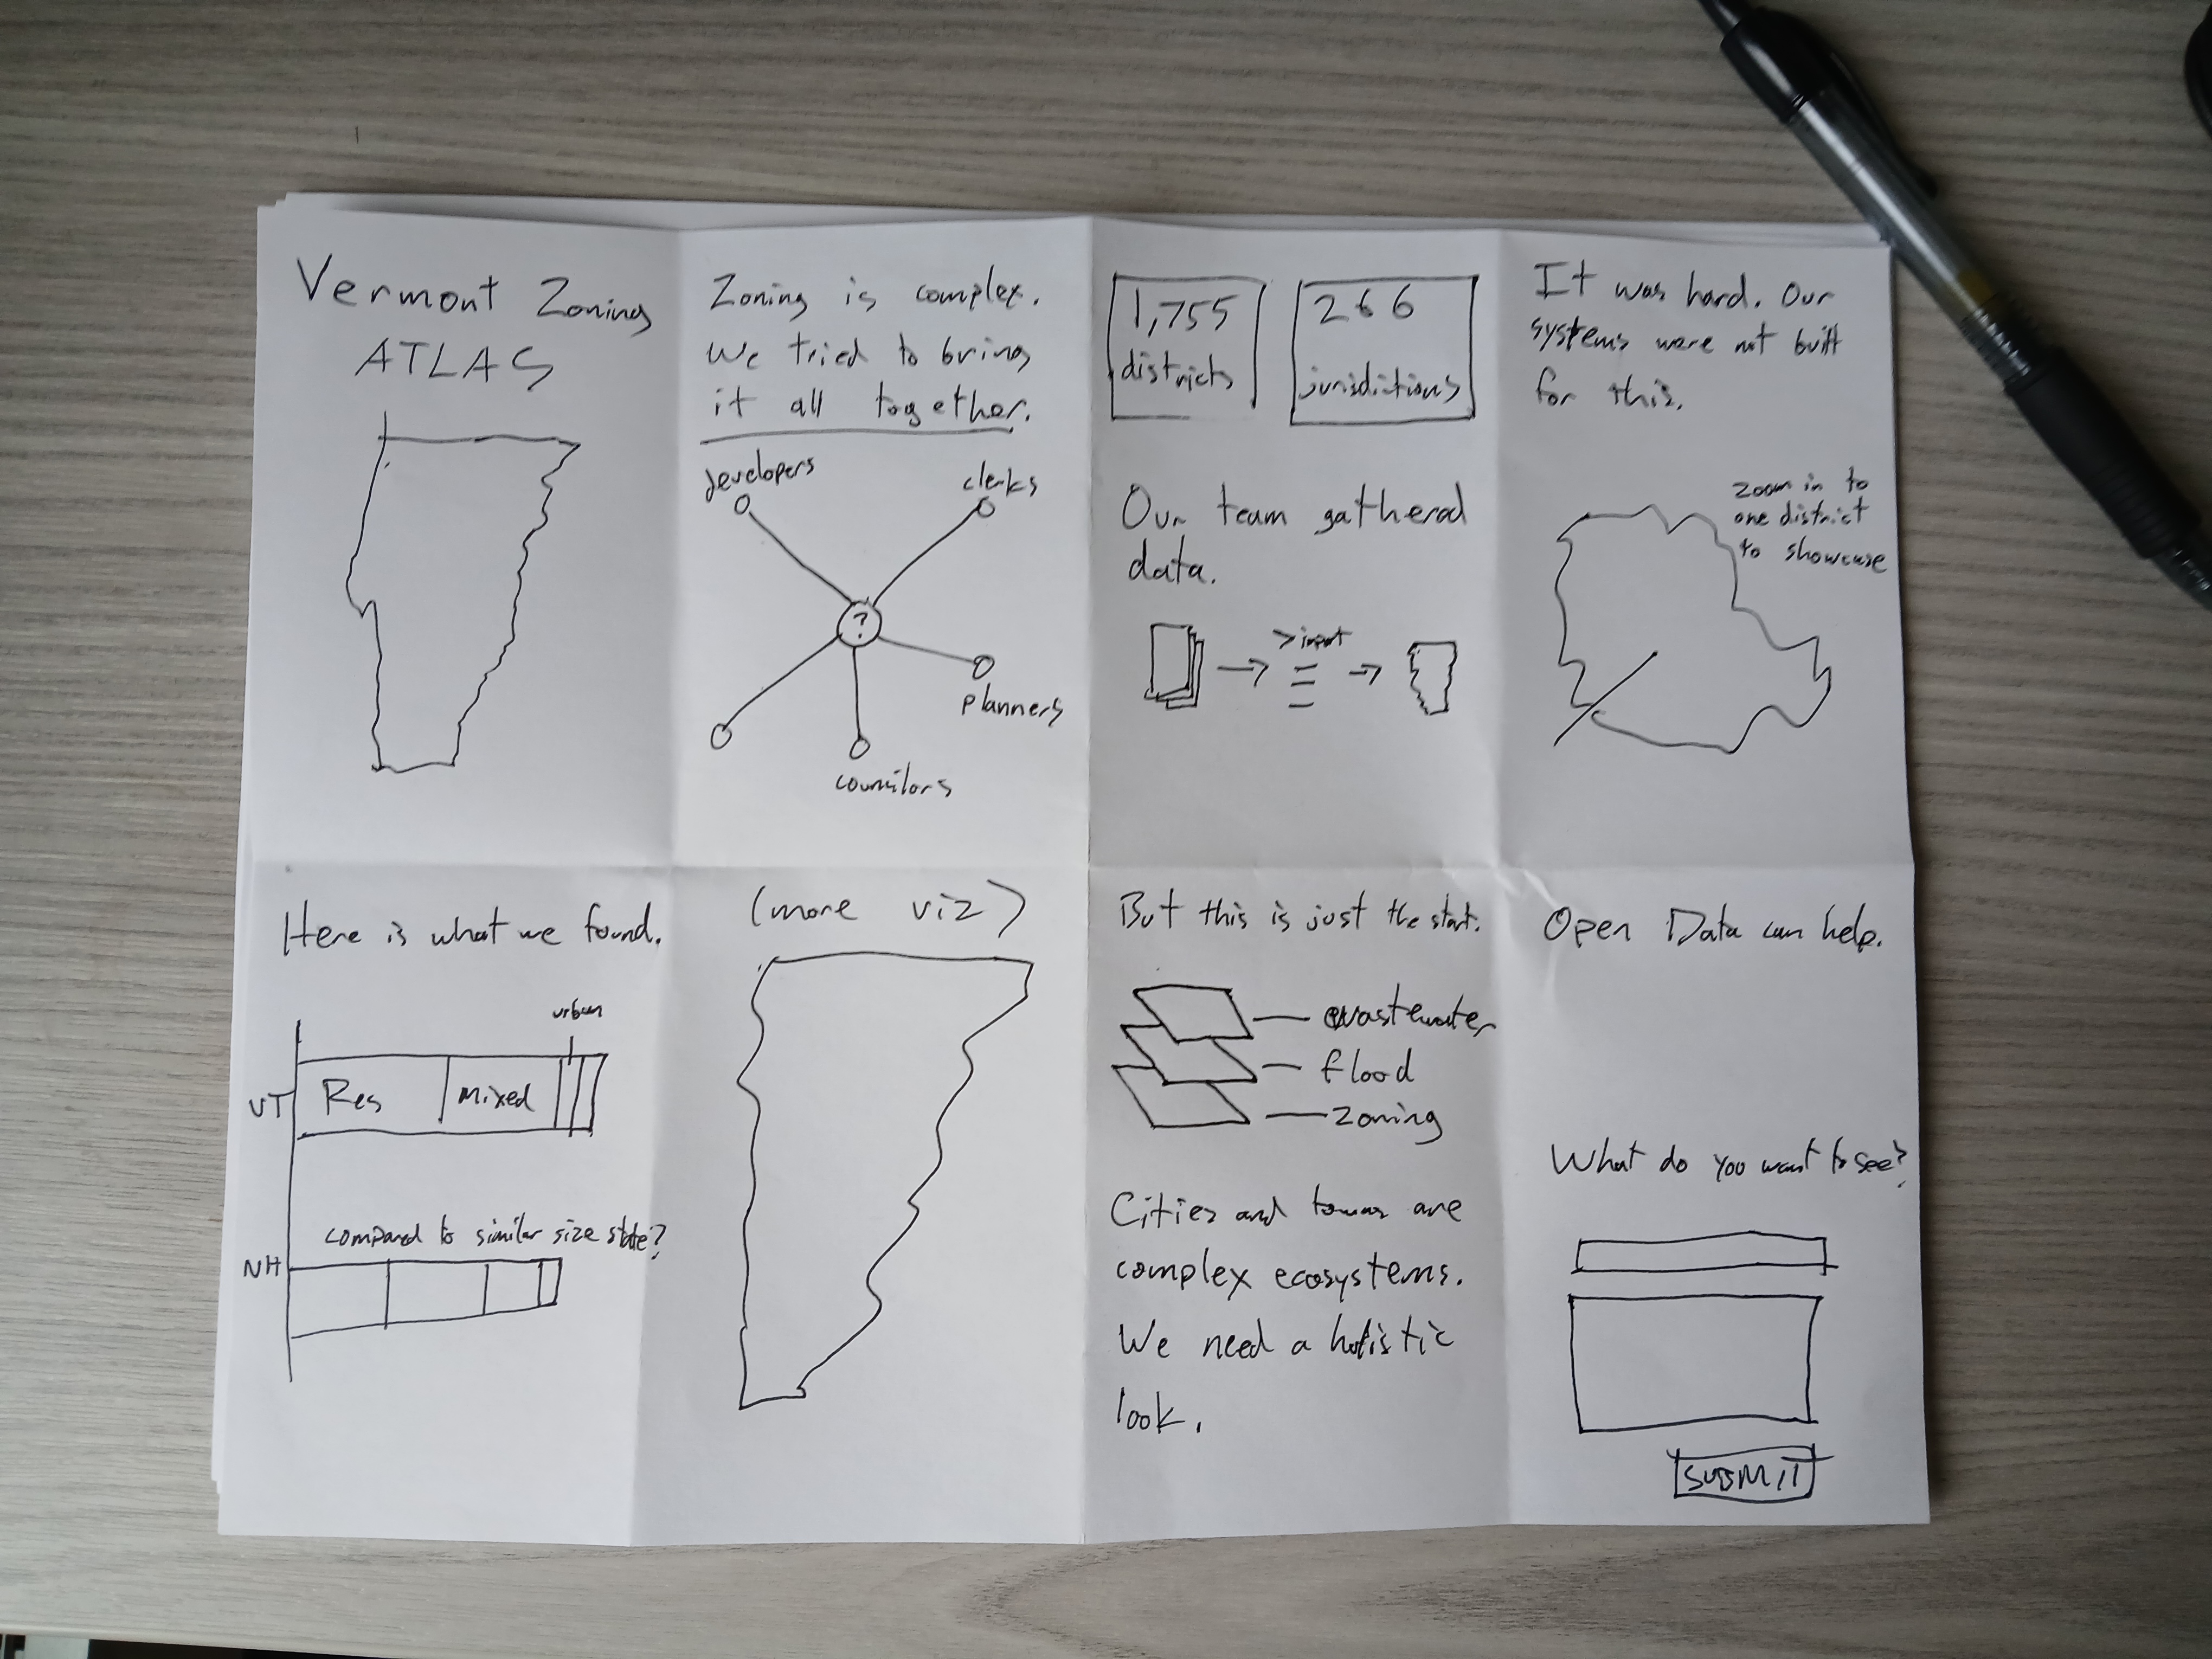 Vermont Zoning
ATLAS
Zoning is complex.
We tried to bring
it all together.
developers
clerks
?
planners
councilors
1,755
districts
266
jurisdictions
Our team gathered
data.
> input
It was hard. Our
systems were not built
for this.
zoom in to
one district
to showcase
Here is what we found.
urban
VT
Res
Mixed
compared to similar size state?
NH
(more viz)
But this is just the start.
wastewater
flood
zoning
Cities and towns are
complex ecosystems.
We need a holistic
look.
Open Data can help.
What do you want to see?
SUBMIT